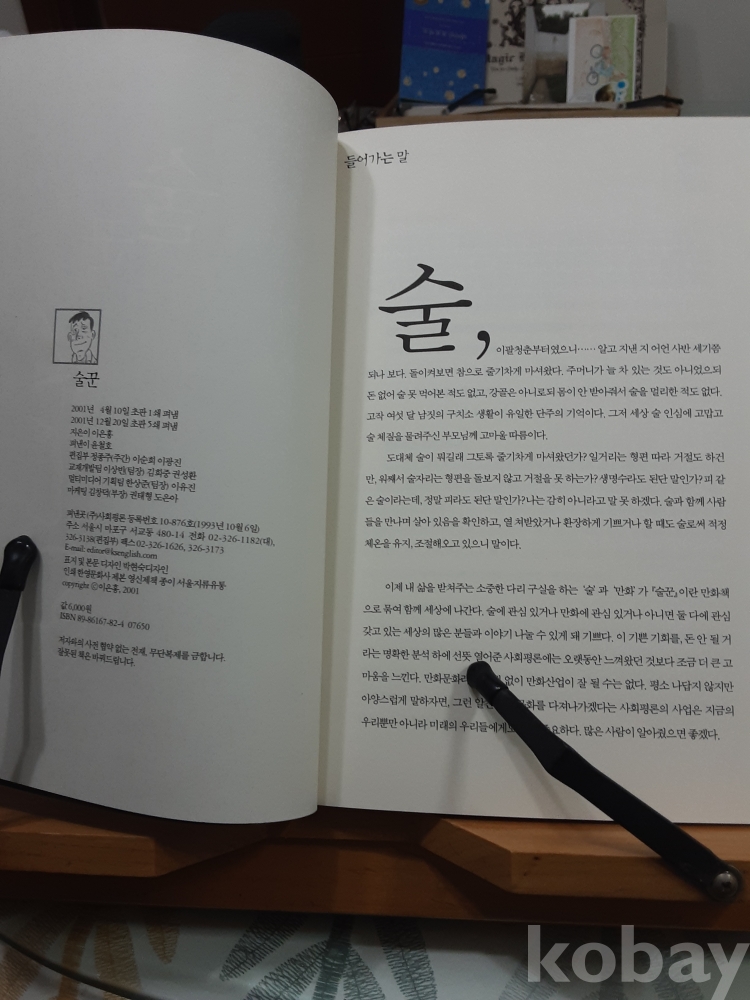 술꾼
2001년 4월 10일 초판 1쇄 펴냄
2001년 12월 20일 초판 5쇄 펴냄
지은이 이은홍
펴낸이 윤철호
편집부 정종주(주간) 이순희 이광진
교재개발팀 이상반(팀장) 김희중 권성환
멀티미디어 기획팀 한상준(팀장) 이유진
마케팀 김창덕(부장) 권태형 도은아
펴낸곳 (주)사회평론 등록번호 10-876호(1993년 10월 6일)
주소 서울시 마포구 서교동 480-14 전화 02-326-1182(대),
326-3138(편집부) 팩스 02-326-1626, 326-3173
E-mail: editor@ksenglish.com
표지 및 본문 디자인 박현숙디자인
인쇄 한영문화사 제본 영신제책 종이 서울지류유통
copyright ⓒ이은홍, 2001
값 6,000원
ISBN 89-86167-82-4 07650
저자와의 사전 협약 없는 전재, 무단복제를 금합니다.
잘못된 책은 바꿔드립니다.
들어가는 말
술, 이팔청춘부터였으니…… 알고 지낸 지 어언 사반 세기쯤
되나 보다. 돌이켜보면 참으로 줄기차게 마셔왔다. 주머니가 늘 차 있는 것도 아니었으되
돈 없어 술 못 먹어본 적도 없고, 강골은 아니로되 몸이 안 받아줘서 술을 멀리한 적도 없다.
고작 여섯 달 남짓의 구치소 생활이 유일한 단주의 기억이다. 그저 세상 술 인심에 고맙고
술 체질을 물려주신 부모님께 고마울 따름이다.
도대체 술이 뭐길래 그토록 줄기차게 마셔왔던가? 일거리는 형편 따라 거절도 하건
만, 위째서 술자리는 형편을 돌보지 않고 거절을 못 하는가? 생명수라도 된단 말인가? 피 같
은 술이라는데, 정말 피라도 된단 말인가? 나는 감히 아니라고 말 못 하겠다. 술과 함께 사람
들을 만나며 살아 있음을 확인하고, 열 쳐받았거나 환장하게 기쁘거나 할 때도 술로써 적정
체온을 유지, 조절해오고 있으니 말이다.
이제 내 삶을 받쳐주는 소중한 다리 구실을 하는 '술'과 '만화'가 『술꾼』이란 만화책
으로 묶여 함께 세상에 나간다. 술에 관심 있거나 만화에 관심 있거나 아니면 둘 다에 관심
갖고 있는 세상의 많은 분들과 이야기 나눌 수 있게 돼 기쁘다. 이 기쁜 기회를, 돈 안 될 거
라는 명확한 분석 하에 선뜻 열어준 사회평론에는 오랫동안 느껴왔던 것보다 조금 더 큰 고
마움을 느낀다. 만화문화 없이 만화산업이 잘 될 수는 없다. 평소 나답지 않지만
아양스럽게 말하자면, 그런 를 다져나가겠다는 사회평론의 사업은 지금의
우리뿐만 아니라 미래의 우리들에게 요하다. 많은 사람이 알아줬으면 좋겠다.
kobay